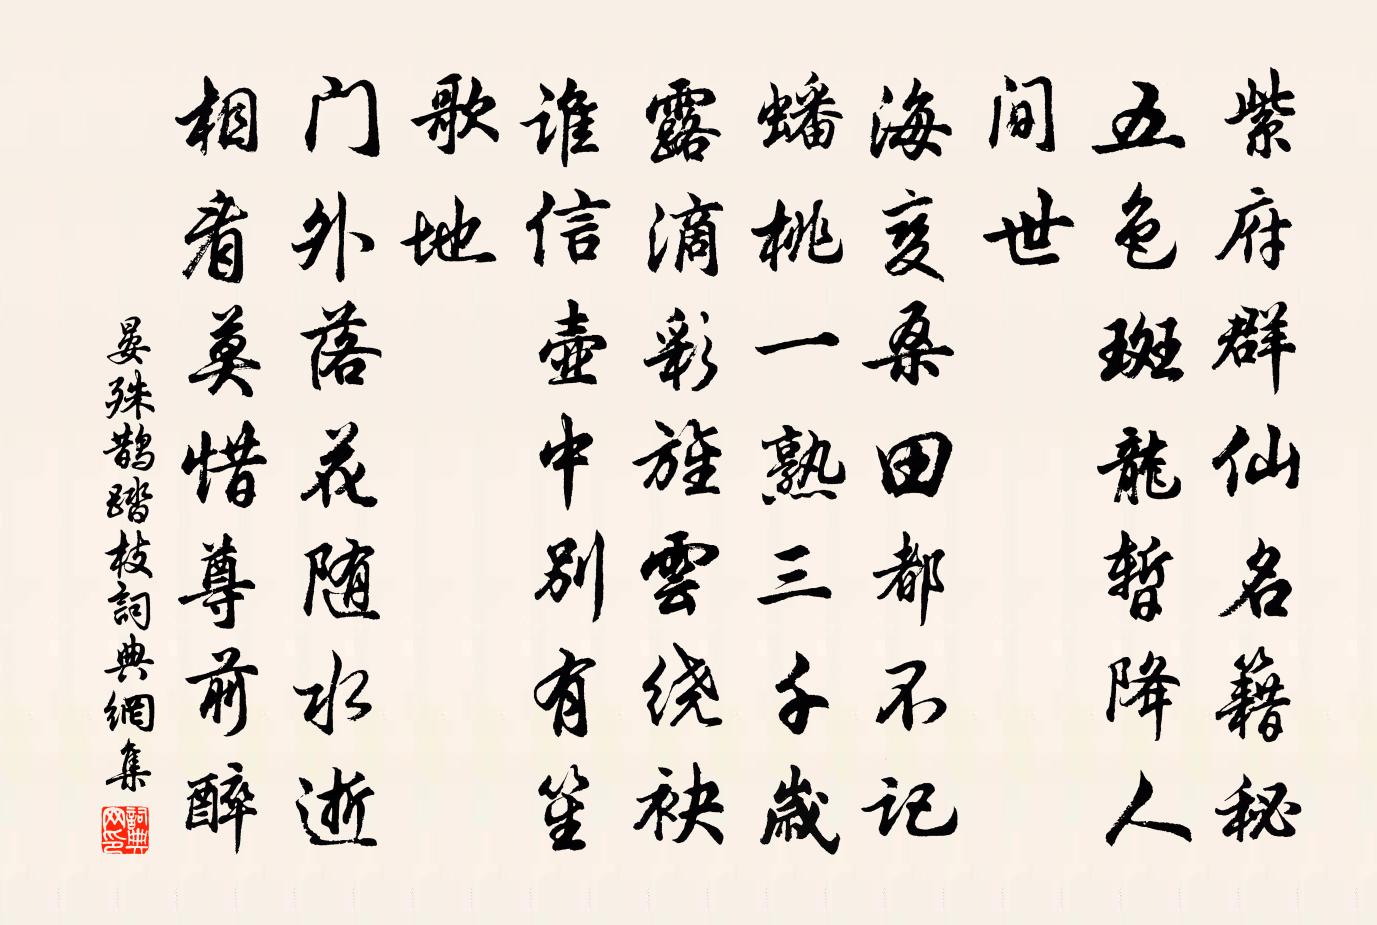 紫府群仙名籍秘
五色斑龍暫降人
间世
海变桑田都不记
蟠桃一熟三千歲
露滴彩旌雲绕袂
谁信壶中别有笙
歌地
门外落花随水逝
相看莫惜尊前醉
晏殊鹊踏枝詞典網集
詞典网印